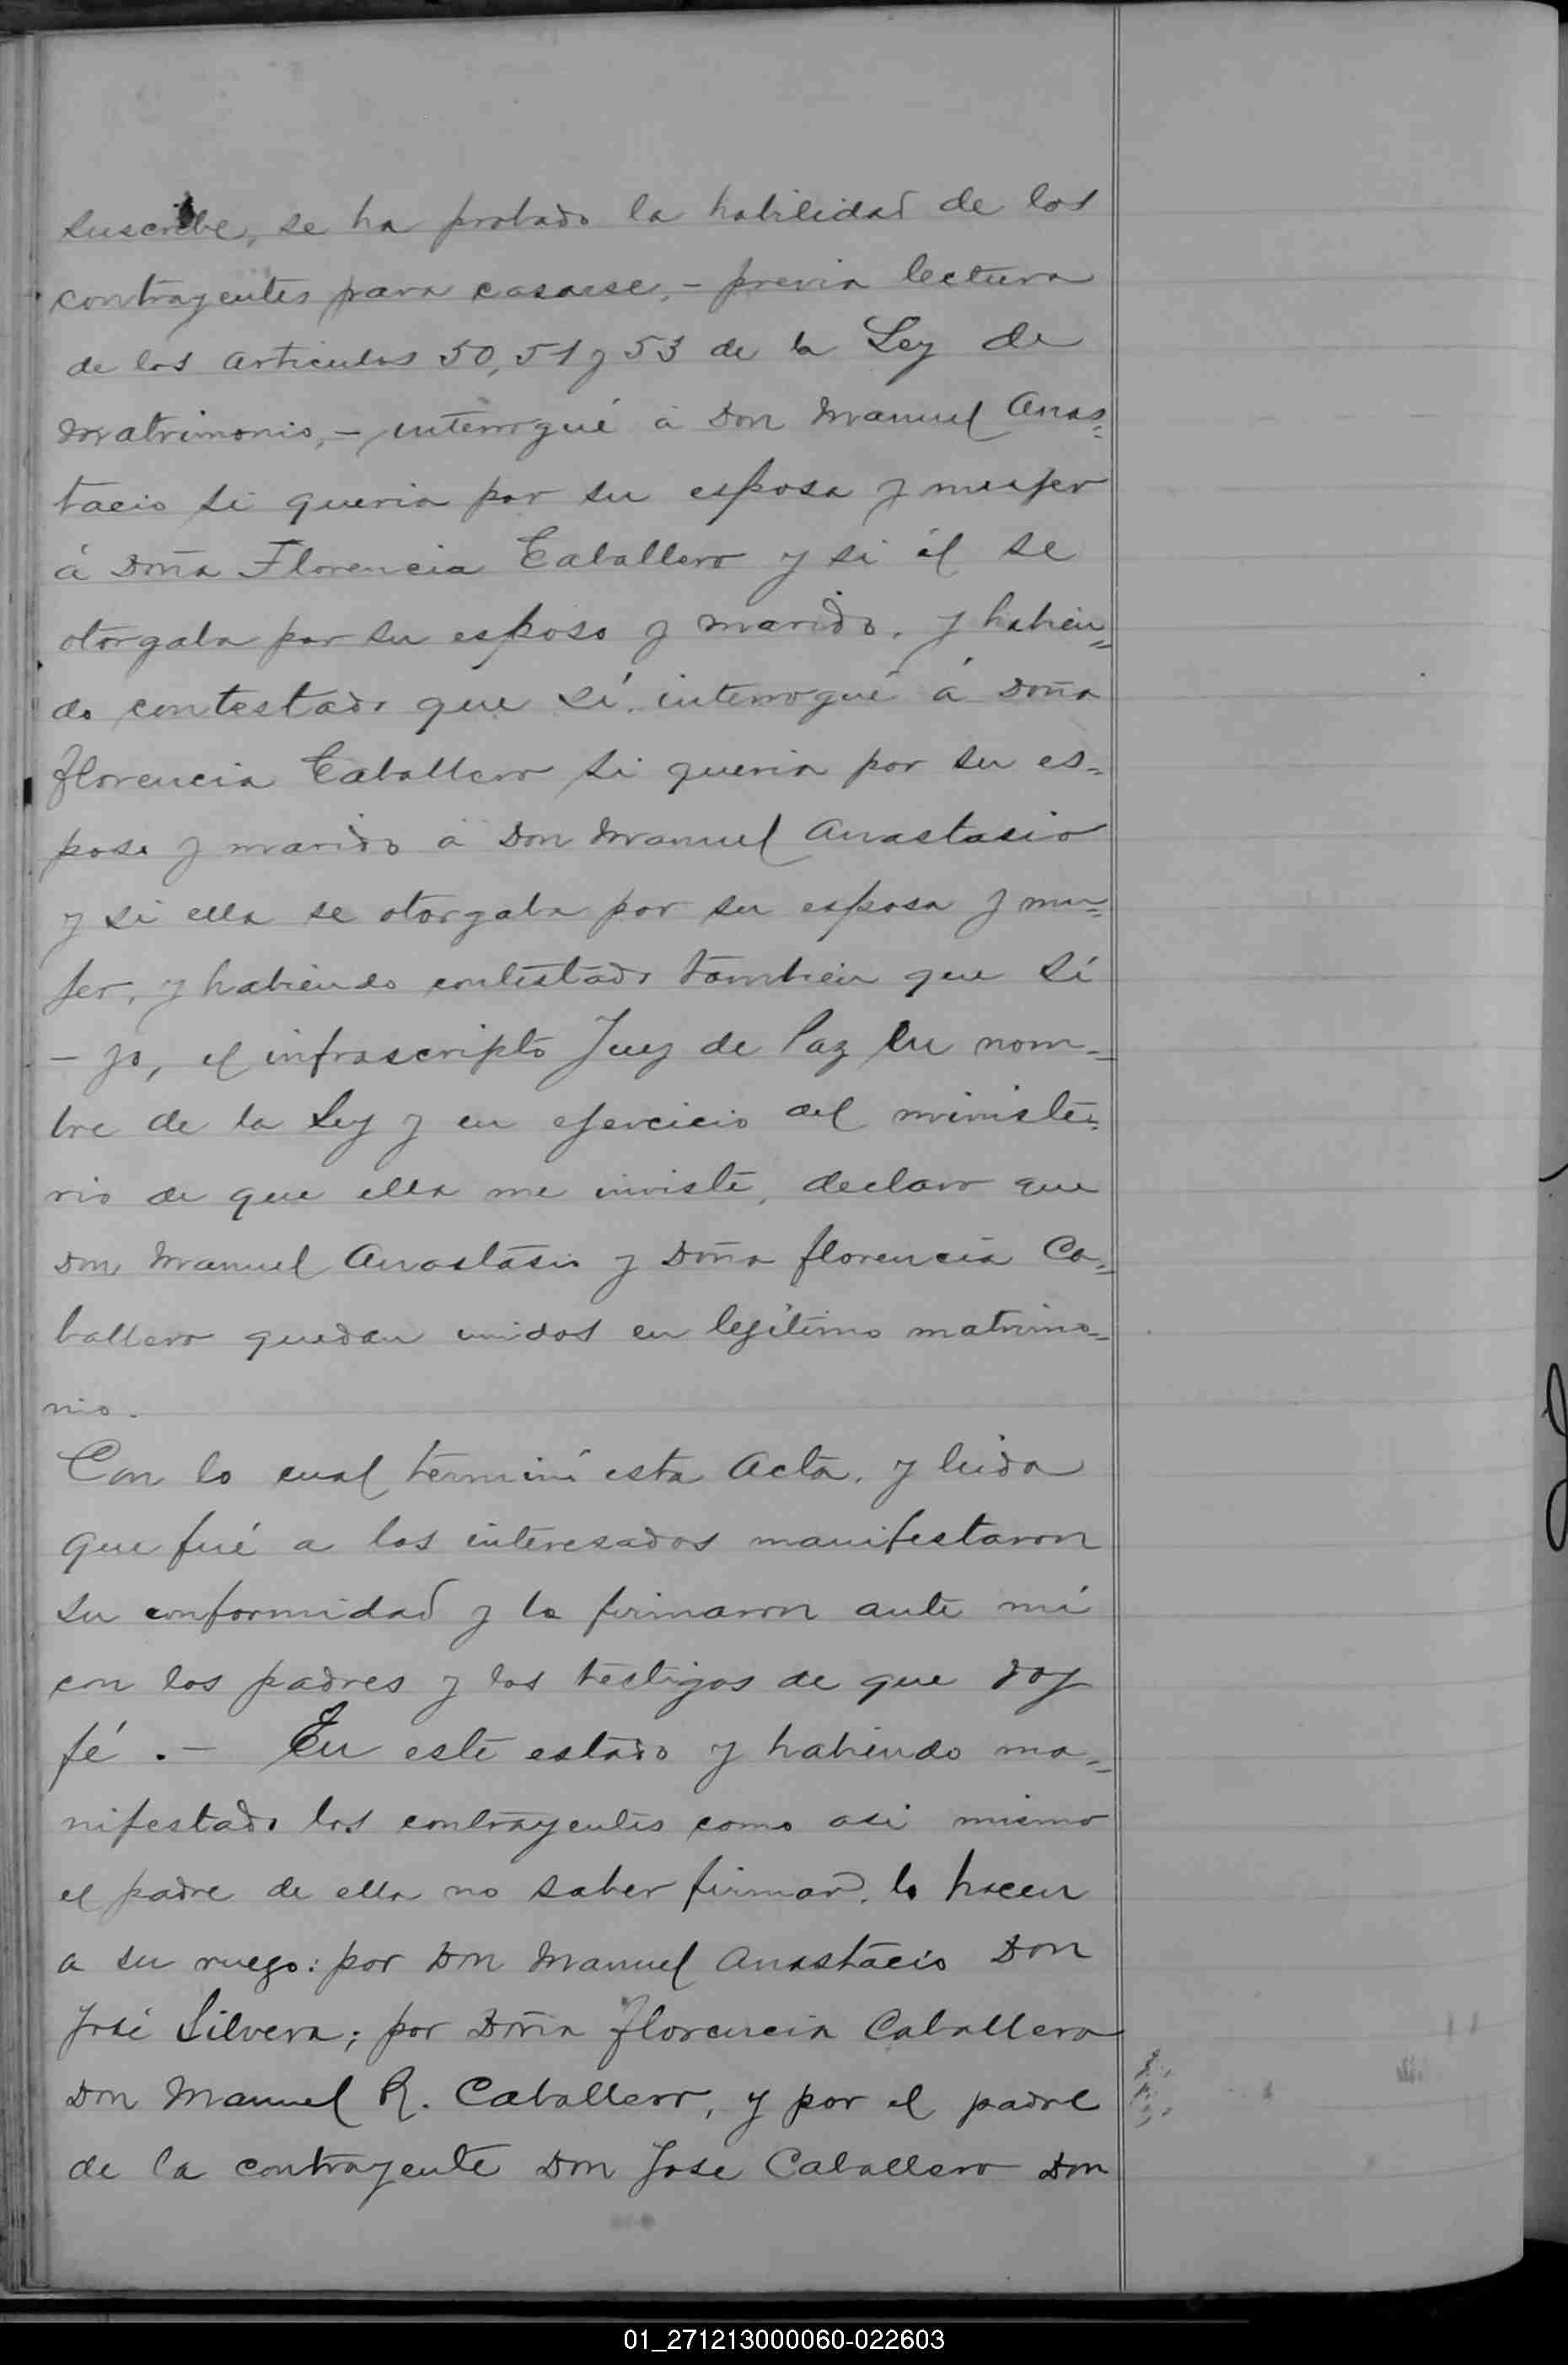 suscribe, se ha probado la habilidad de los
contrayentes para casarse, - previa lectura
de los articulos 50, 51 y 53 de la Ley de
Matrimonio, - interrogué á Don Manuel Anas=
tacio si queria por su esposa y mujer
á Doña Florencia Caballero y si él se
otorgaba por su esposo y marido. y habien=
do contestado que sí. interrogué á Doña
Florencia Caballero si queria por su es=
poso y marido á Don Manuel Anastasio
y si ella se otorgaba por su esposa y mu=
jer, y habiendo contestado tambien que sí
- yo, el infrascripto Juez de Paz en nom=
bre de la Ley y en ejercicio del ministe=
rio de que ella me inviste, declaro que
Don Manuel Anastasio y Doña Florencia Ca=
ballero quedan unidos en legítimo matrimo=
nio.
Con lo cual terminó esta Acta. y leida
que fué a los interesados manifestaron
su conformidad y la firmaron ante mí
con los padres y los testigos de que doy
fé. - En este estado y habiendo ma=
nifestado los contrayentes como asi mismo
el padre de ella no saber firmar, lo hacen
a su ruego: por Don Manuel Anastacio Don
José Silvera; por Doña Florencia Caballero
Don Manuel R. Caballero, y por el padre
de la contrayente Don Jose Caballero Don
01_271213000060-022603